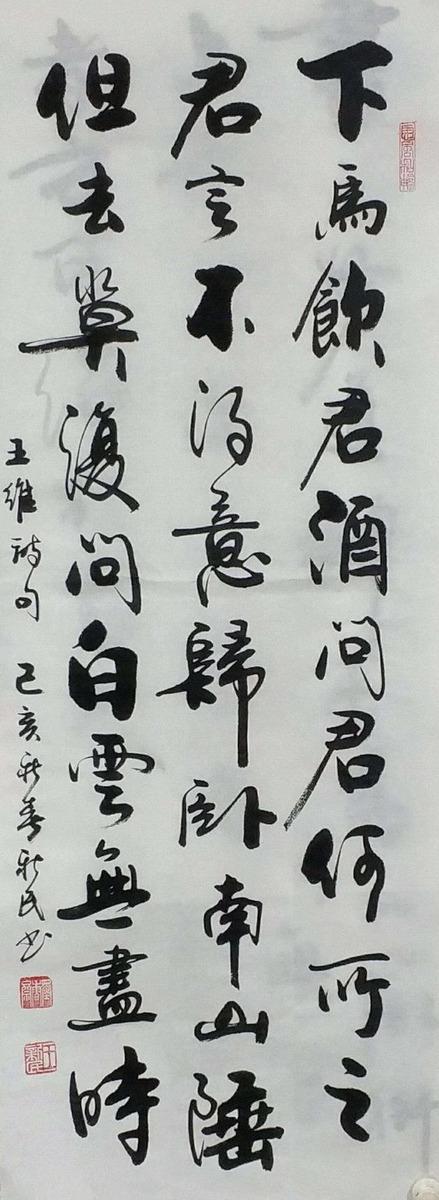 下馬飲君酒問君何所之
君言不得意歸卧南山陲
但去莫復問白雲無盡時
王維詩句 己亥新春新民书